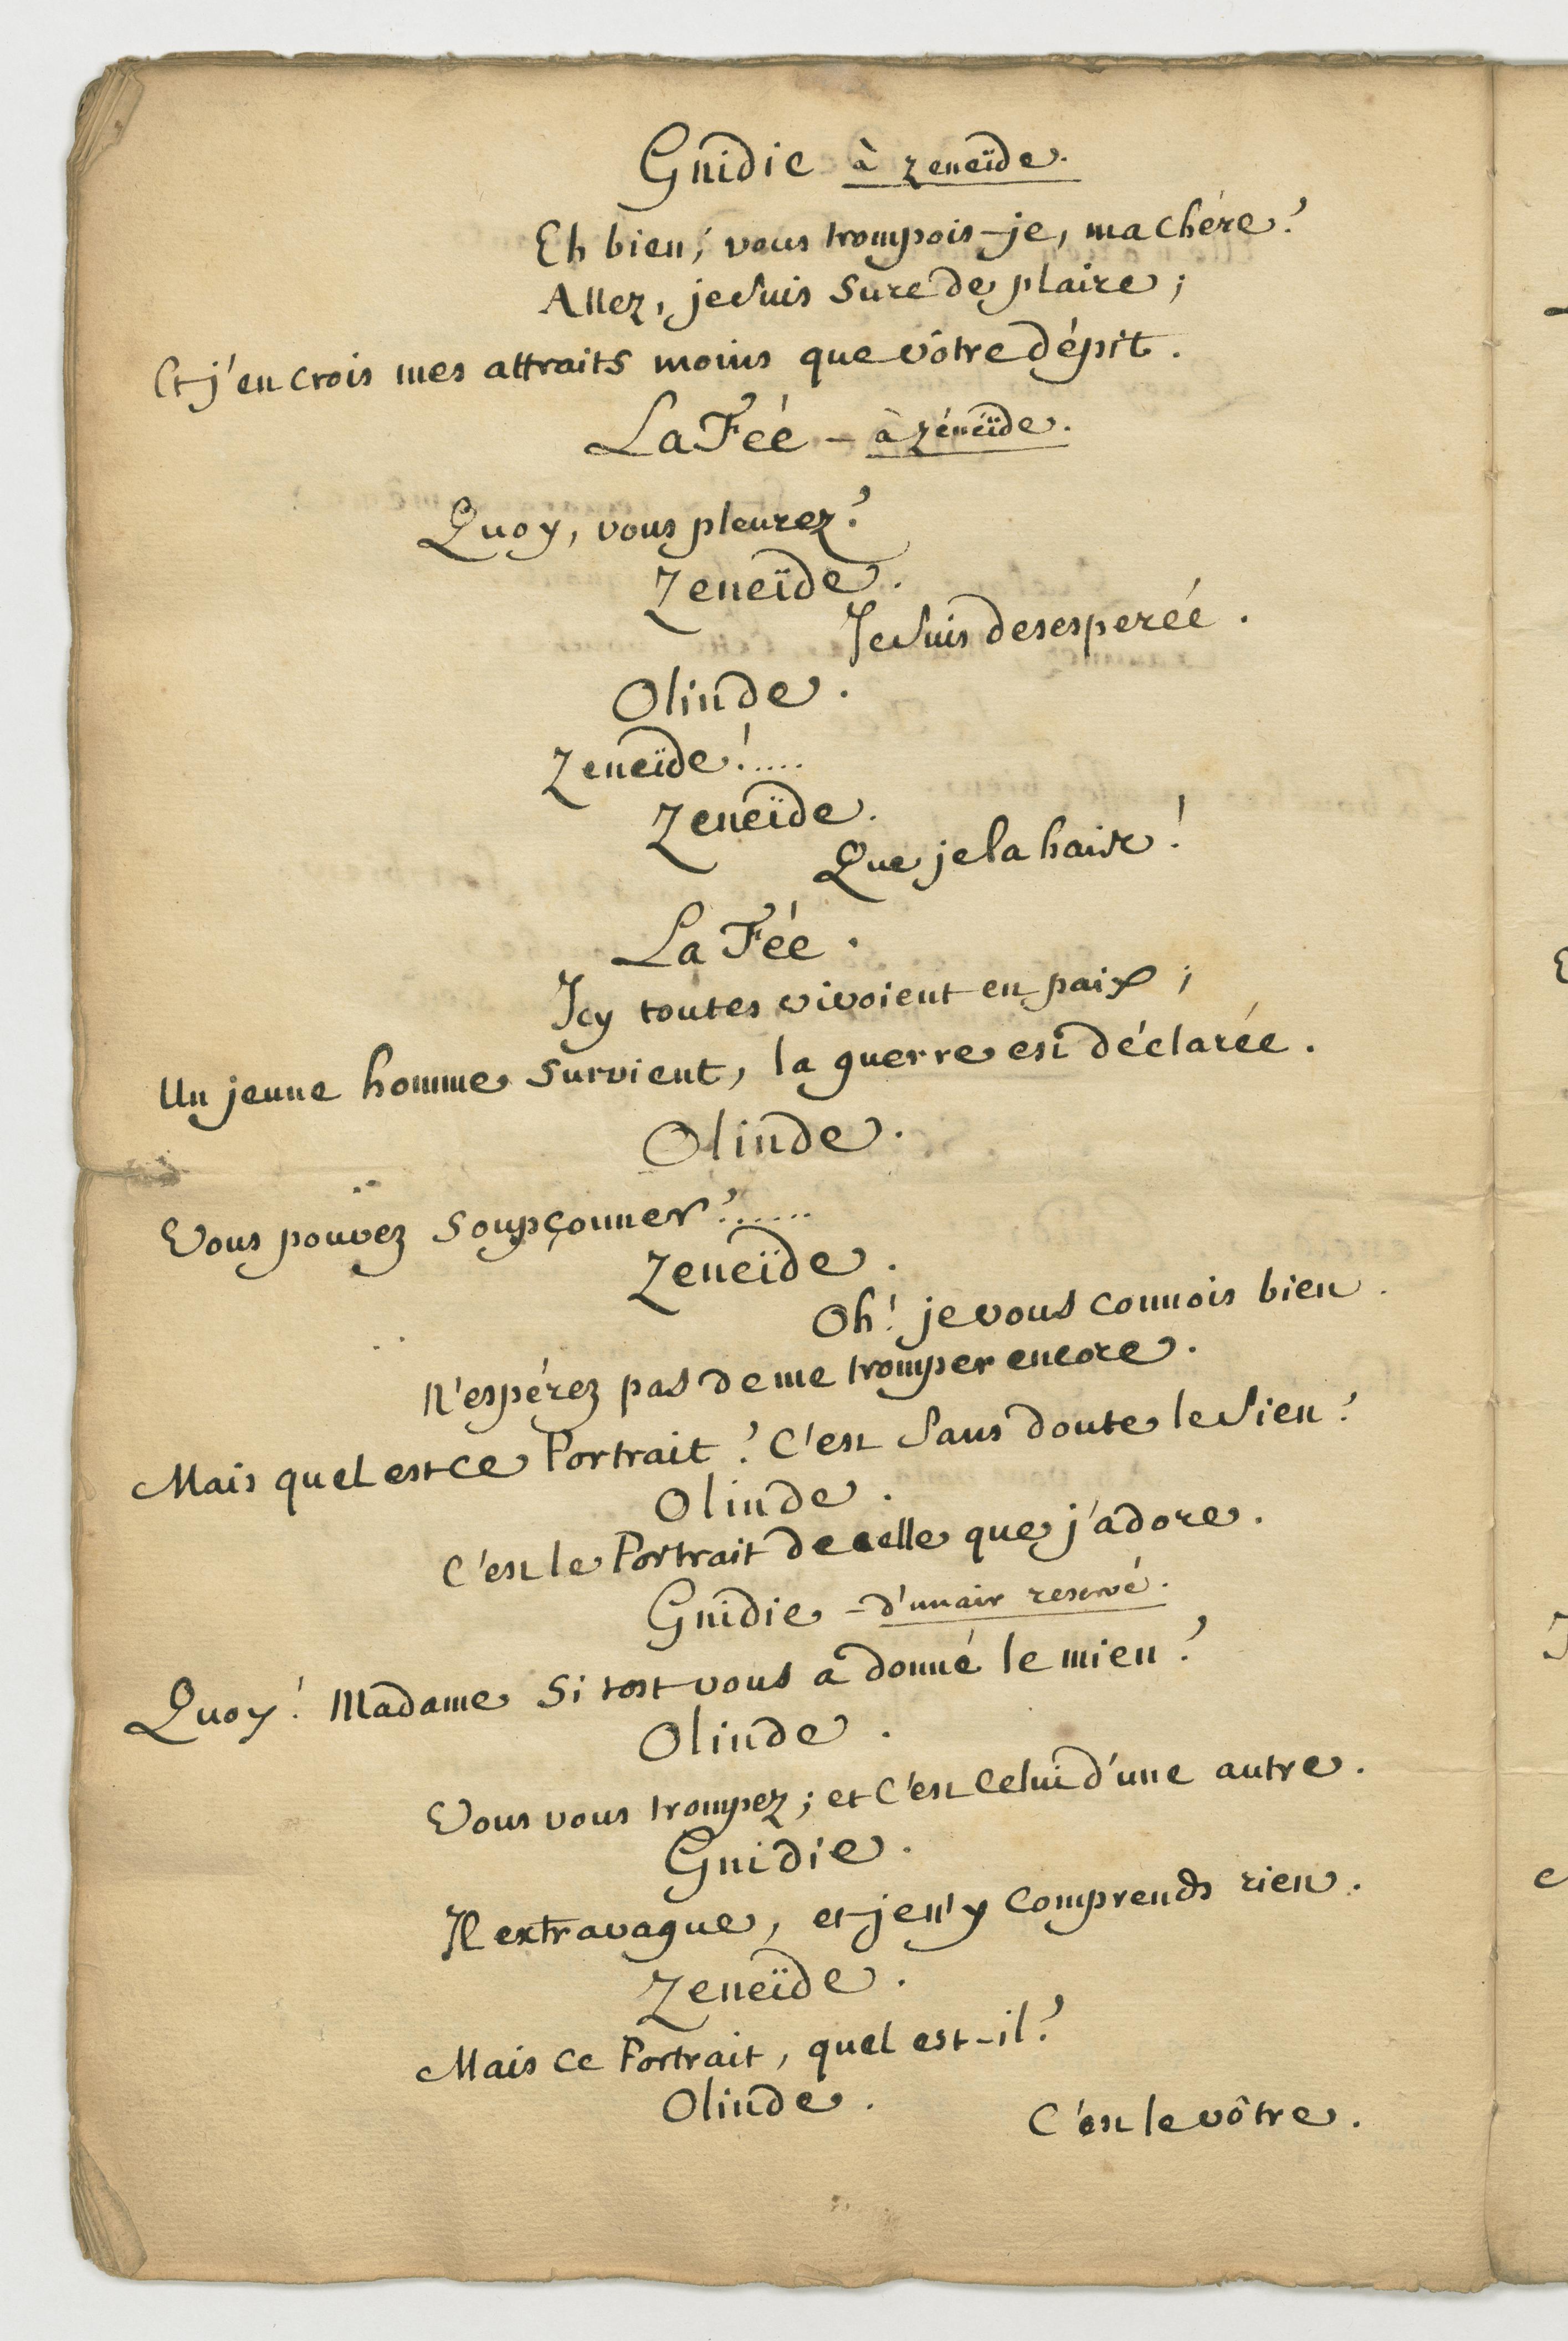 Gnidie à zeneïde.
Eh bien, vous trompois-je, ma chére?
Allez, je suis sure de plaire;
Et j'en crois mes attraits moins que vôtre dépit.
La Fée - à zénéïde.
Quoy, vous pleurez?
Zeneïde.
Je suis desesperée.
Olinde.
Zeneïde!.....
Zeneïde.
Que je la hais!
La Fée.
Icy toutes vivoient en paix;
Un jeune homme survient, la guerre est déclarée.
Olinde.
Vous pouvez soupçonner?......
Zeneïde.
Oh! je vous connois bien.
N'espérez pas de me tromper encore.
Mais quel est ce Portrait? C'est sans doute le sien?
Olinde.
C'est le Portrait de celle que j'adore.
Gnidie - d'un air reservé.
Quoy! Madame si tost vous a donné le mien?
Olinde.
Vous vous trompez; et c'est celui d'une autre.
Gnidie.
Il extravague, et je n'y comprends rien.
Zeneïde.
Mais ce Portrait, quel est-il?
Olinde.
C'est le vôtre.